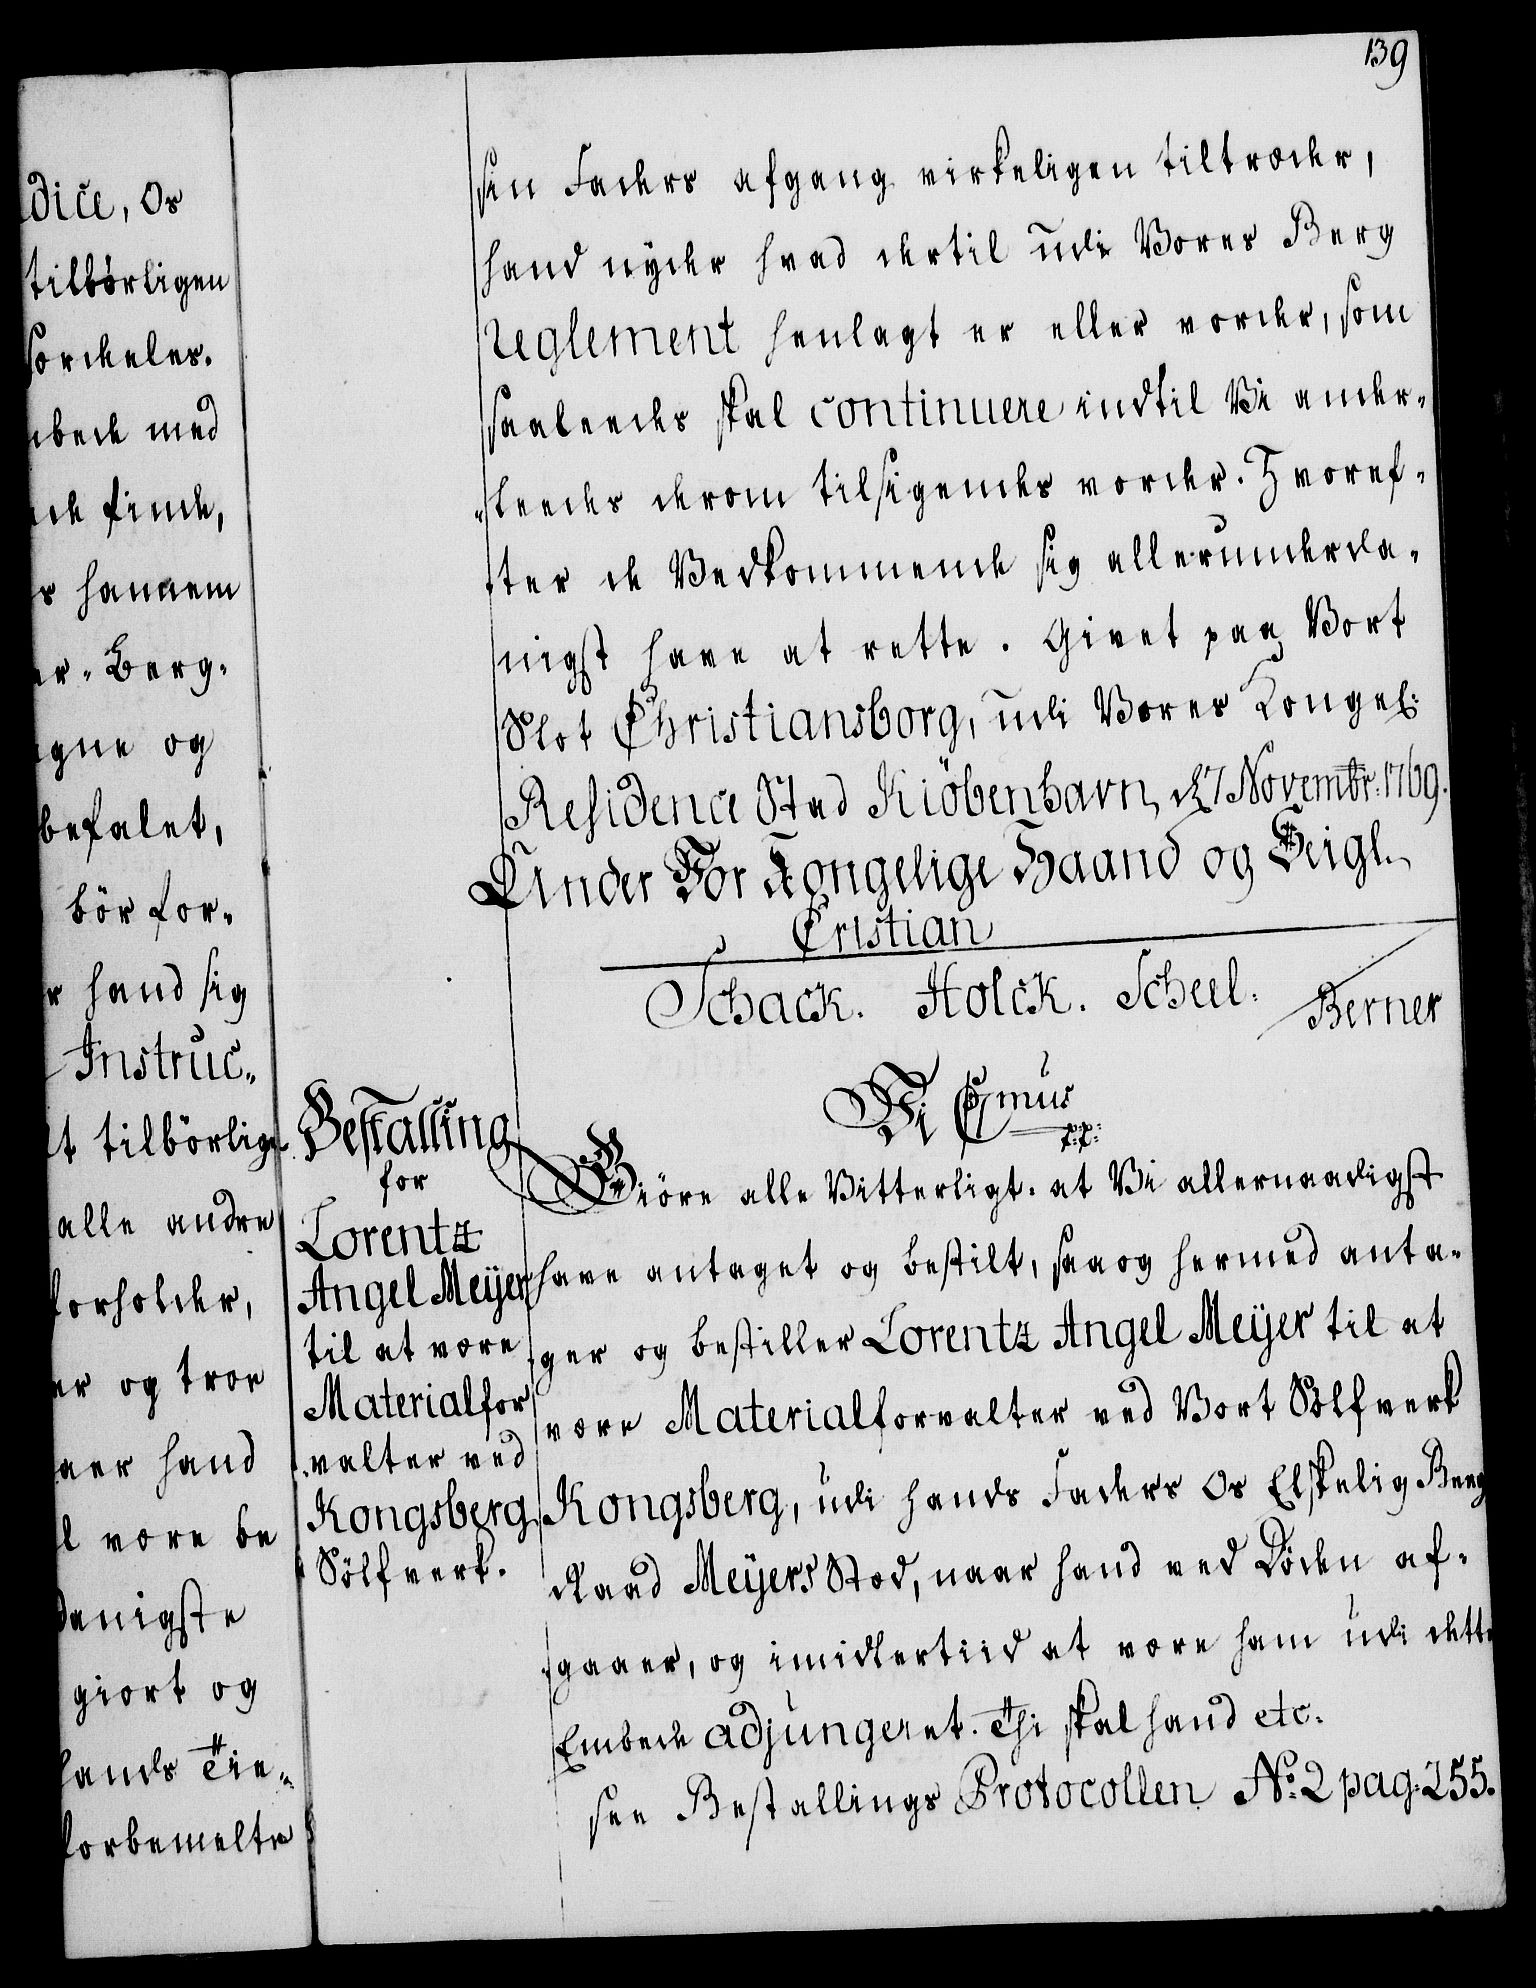 139
dice, Os
tilbörligen
bede med
de finde,
s hannem
er-Berg-
gne og
befalet,
bör for-
r hand sig
Instruc-
t tilbörlig
alle andre
forholder,
er og troe
aer hand
l være be
danigste
giort og
hands Tie-
forbemelte
sin Faders afgang virkeligen tiltræder,
hand nyder hvad dertil udi Vores Berg
reglement henlagt er eller vorder, som
saaleedes skal continuere indtil Vi ander-
-leedes derom tilsigendes vorder. Hvoref-
-ter de Vedkommende sig allerunderda-
nigst have at rette. Givet paa Vort
Slot Christiansborg, udi Vores Kongel:
Residence Stad Kiöbenhavn, d. 7 Novembr: 1769.
Under Vor Kongelige Haand og Seigl.
Cristian
Schack. Holck. Scheel.
Berner
Bestalling
for
Lorentz
Angel Meijer
til at være
Materialfor
-valter ved
Kongsberg
Sölfverk.
Vi C mus
p:p:
Giöre alle Vitterligt: at Vi allernaadigst
have antaget og bestilt, saaog hermed anta-
-ger og bestiller Lorentz Angel Meijer til at
være Materialforvalter ved Vort Sölfverk
Kongsberg, udi hands Faders Os Elskelig Berg
Raad Meijers Sted, naar hand ved Döden af-
-gaaer, og imidlertiid at være ham udi dette
Embede adjungeret. Thi skal hand etc.
see Bestallings Protocollen No. 2 pag: 255.